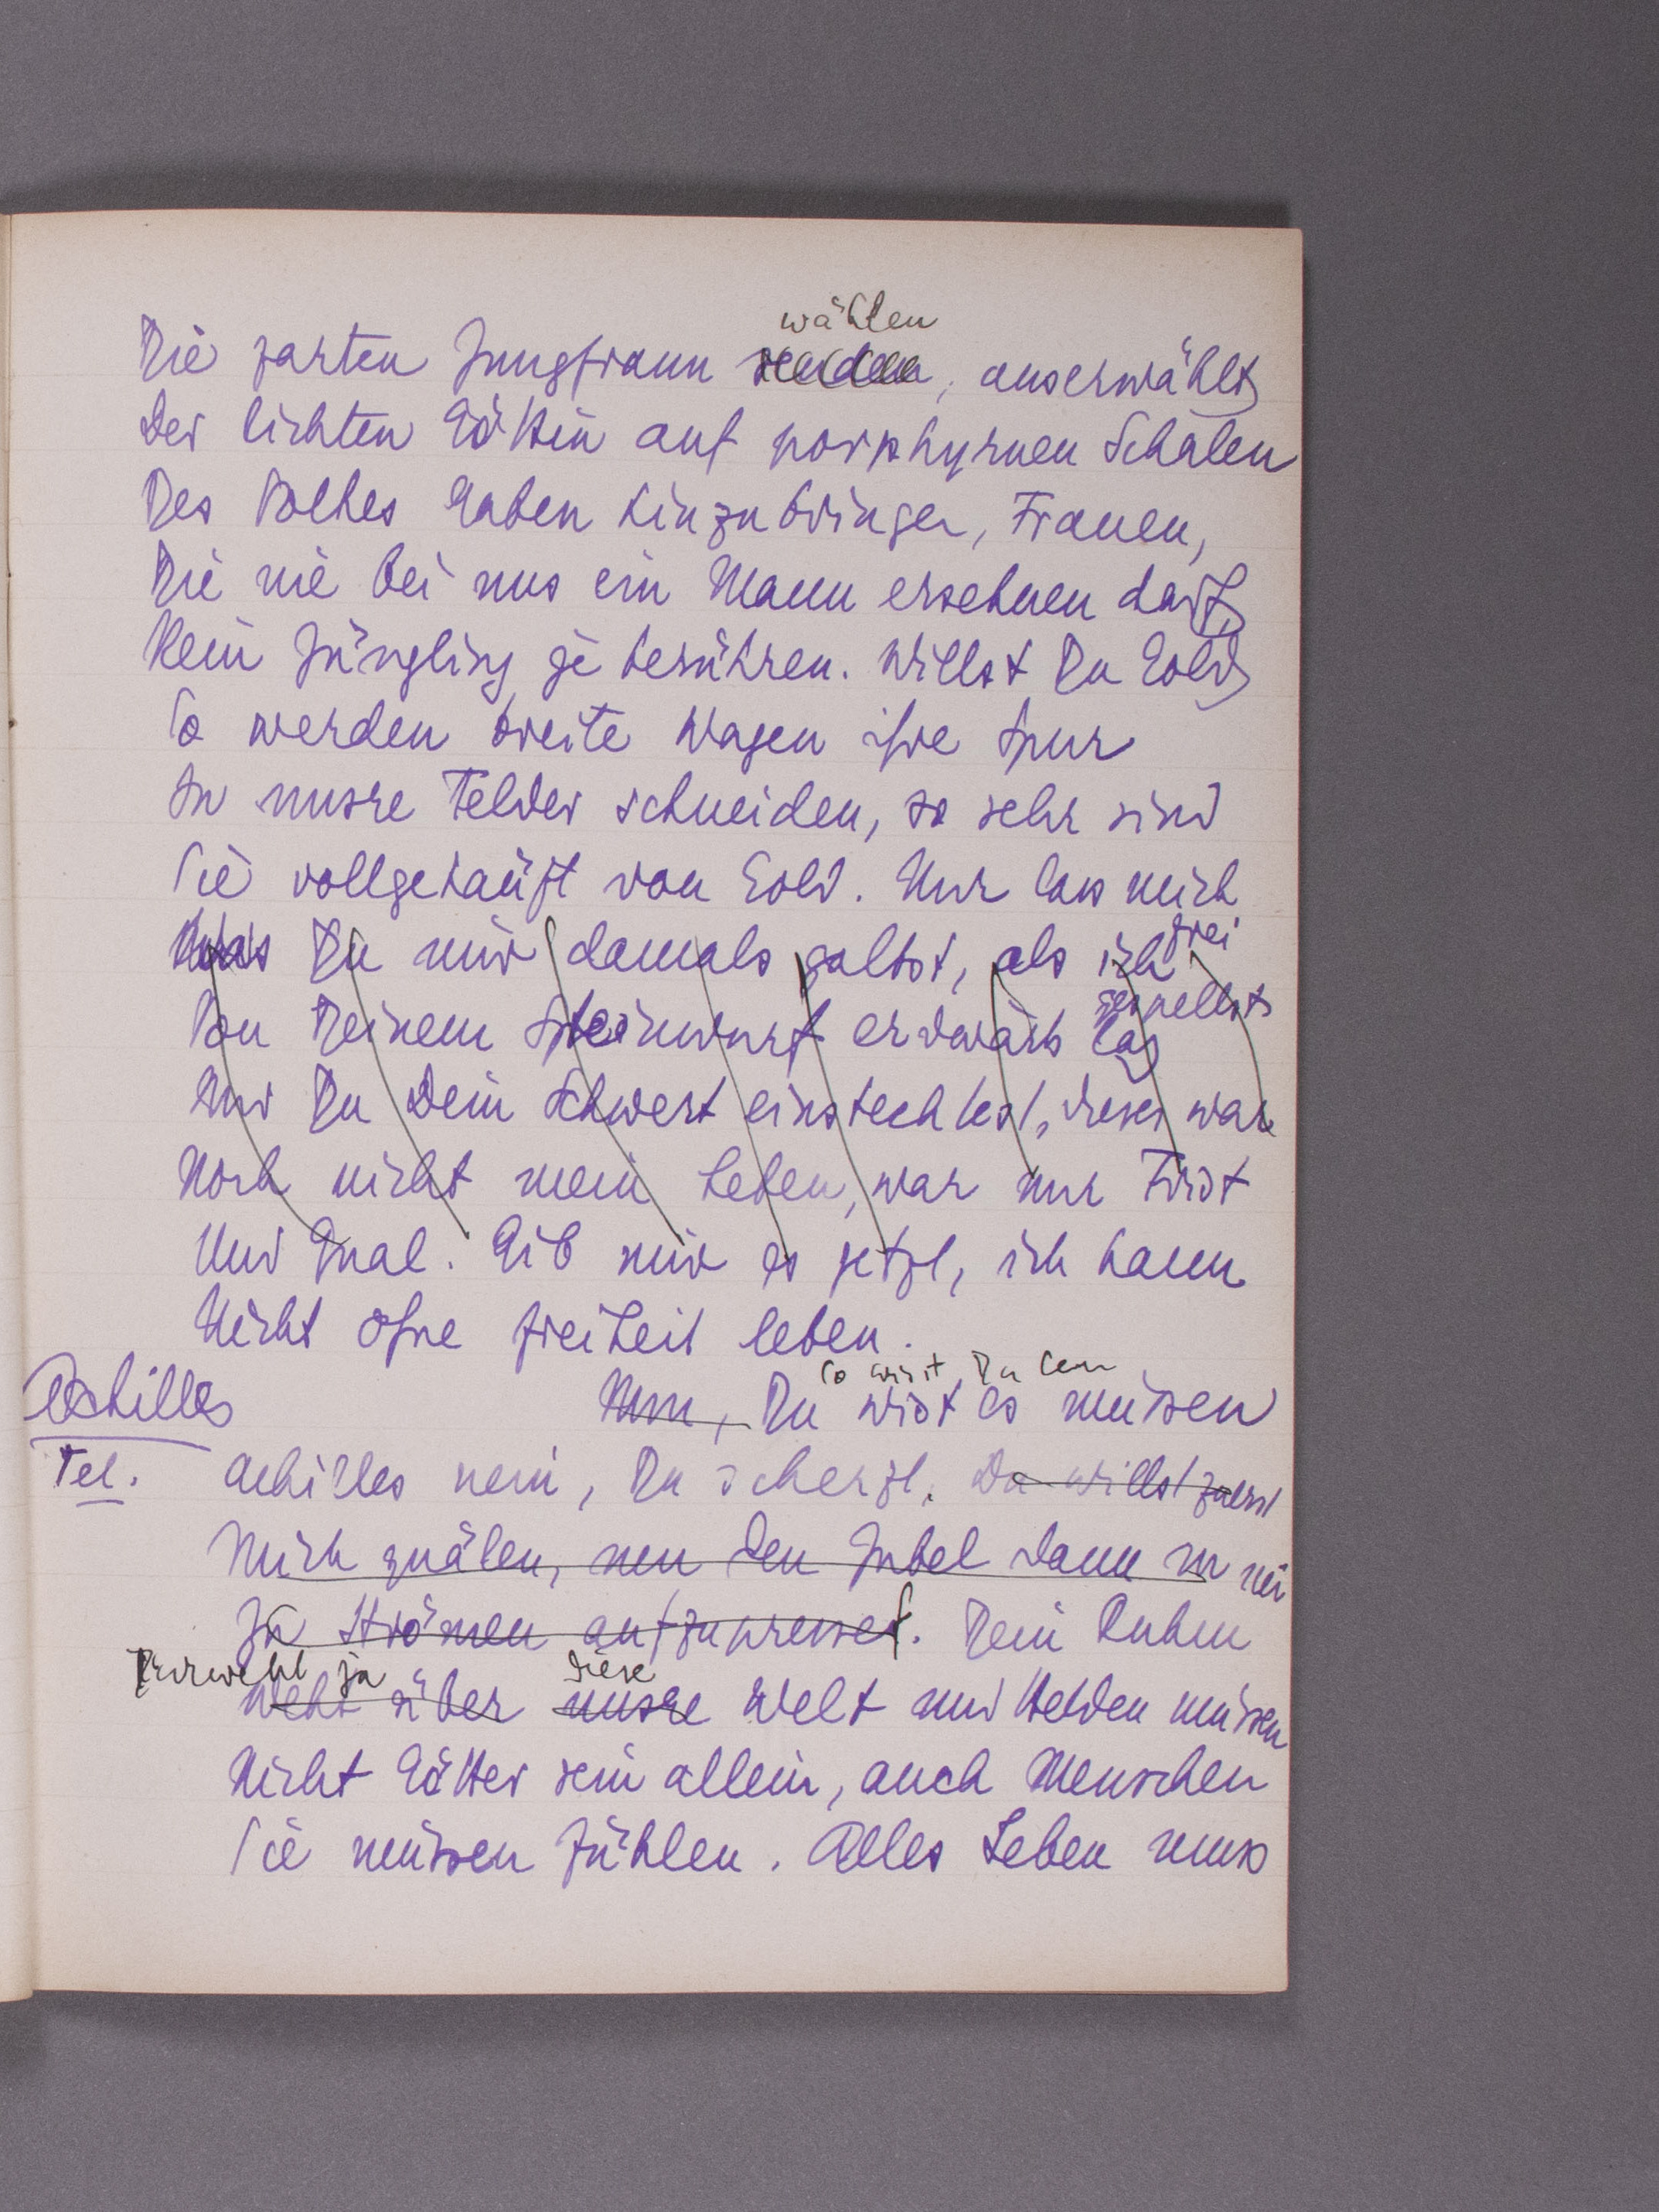 wählen
Die zarten Jungfraun senden, auserwählt
Der lichten Göttin auf porphyrnen Schalen
Des Volkes Gaben hinzubringen, Frauen,
Die nie bei uns ein Mann ersehnen darf,
Kein Jüngling je berühren. Willst Du Gold
So werden breite Wagen ihre Spur
In unsre Felder schneiden, so sehr sind
Sie vollgehäuft von Gold. Nur lass mich
frei
Was Du mir damals gabst, als ich
jenseits
Von Deinem Steinwurf erdwärts lag
Und Du Dein Schwert einstecktest, dieses war
Noch nicht mein Leben, war nur Frist
Und Qual. Gib mir es jetzt, ich kann
Nicht ohne Freiheit leben.
So wirst Du lern
Achilles Nun, Du wirst es müssen
Tel. Achilles nein, Du scherzt. Du willst zuerst
Mich quälen, um den Jubel dann in mir
Zu Strömen aufzupressen. Dein Ruhm
weht ja diese
Weht über unsre Welt und Helden müssen
Nicht Götter sein allein, auch Menschen
Sie müssen fühlen. Alles Leben muss